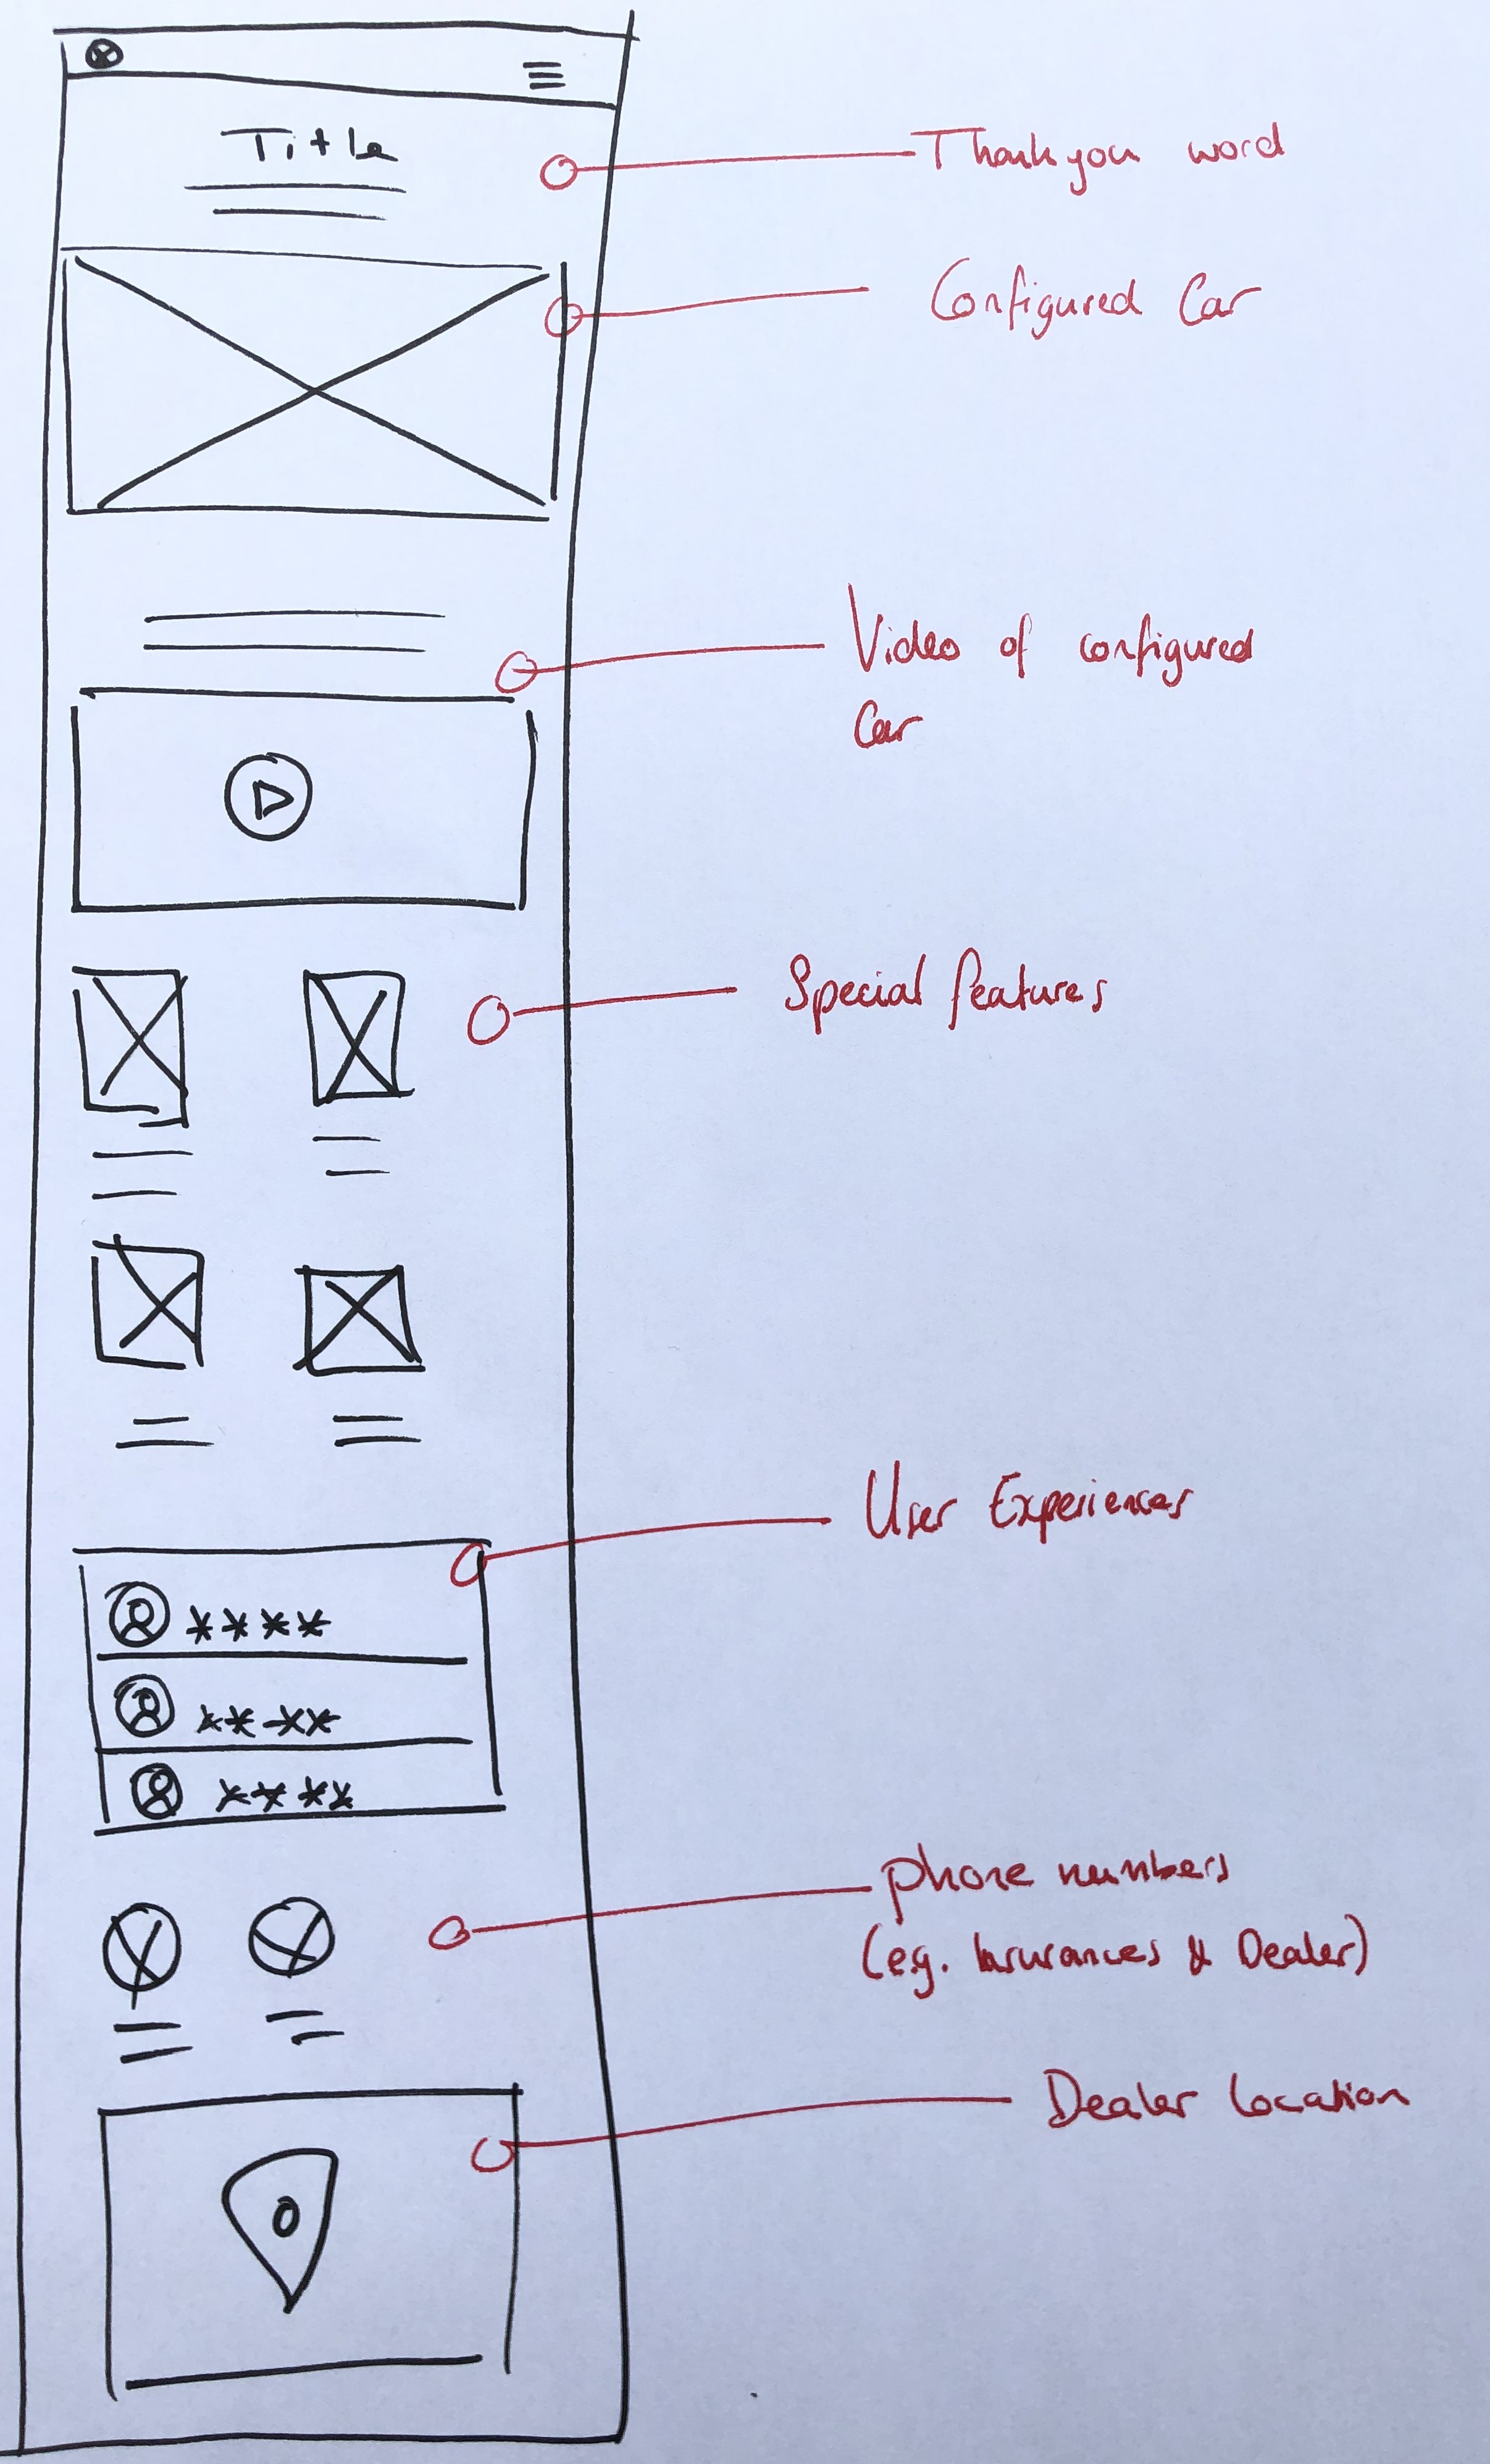 Title
Thank you word
Configured Car
Video of configured
Car
Special features
User Experiences
phone numbers
(e.g. Insurances & Dealer)
Dealer Location